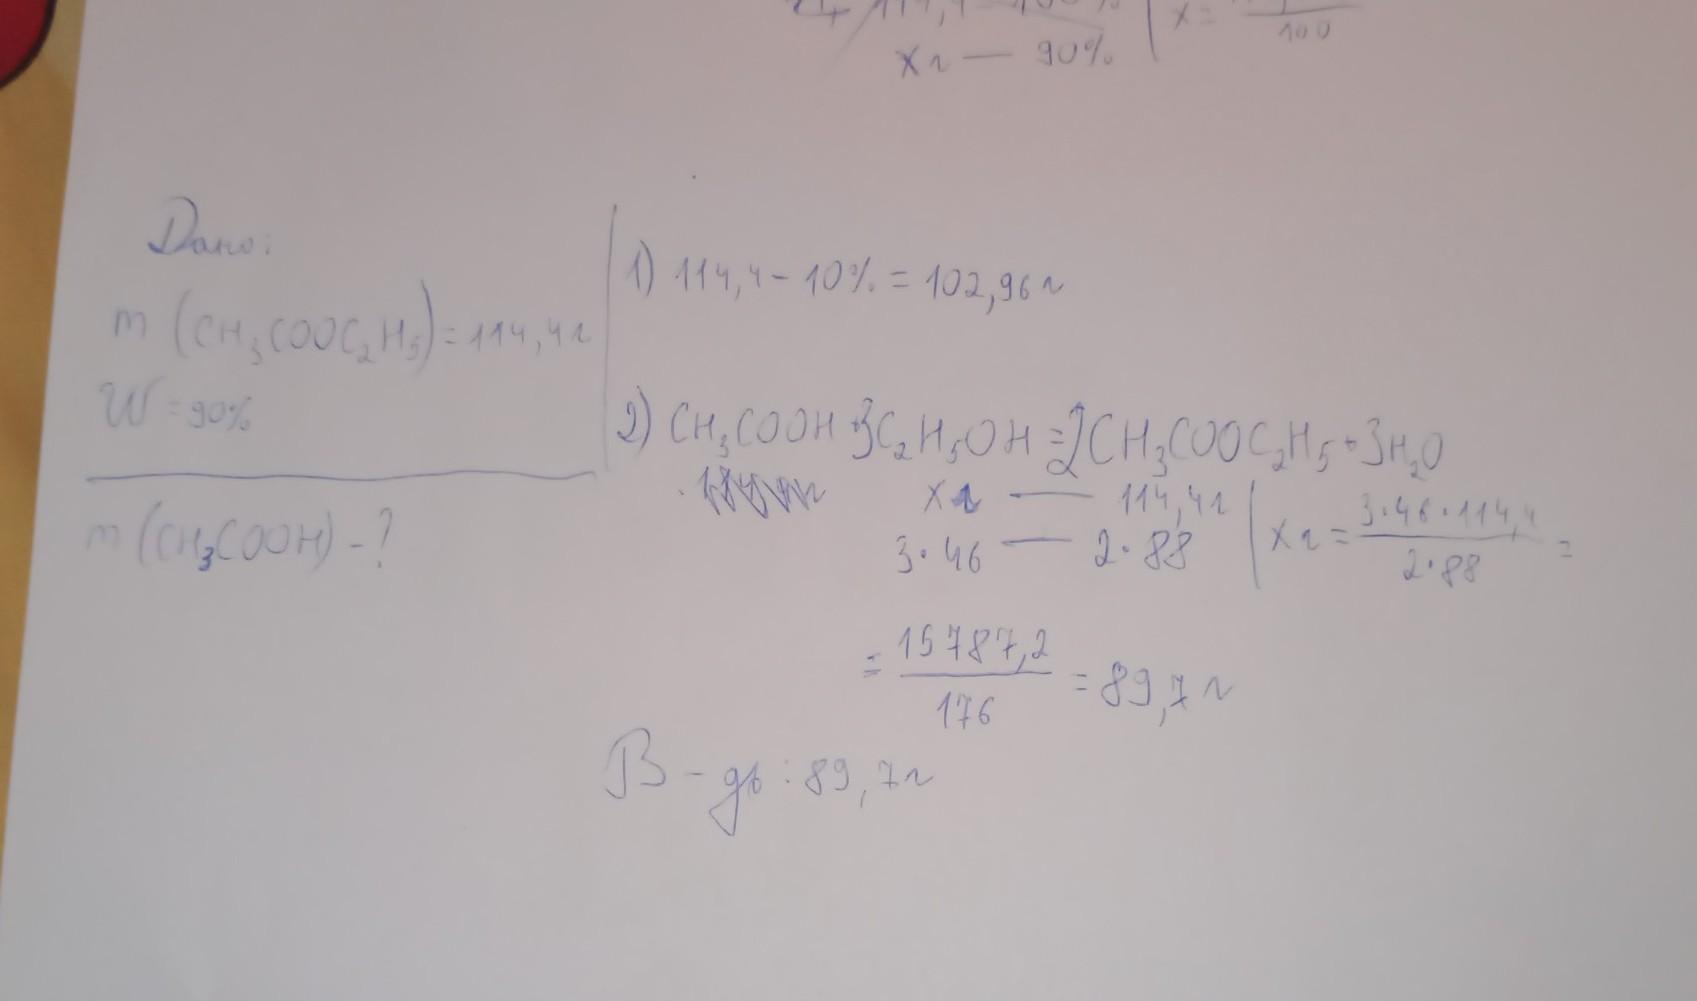 х г — 90% | х =
100
Дано:
m (CH₃COOC₂H₅) = 114,4 г
W = 90%
m (CH₃COOH) - ?
1) 114,4 - 10% = 102,96 г
2) CH₃COOH + 3C₂H₅OH = 2CH₃COOC₂H₅ + 3H₂O
х г — 114,4 г | х г = 3·46·114,4 / 2·88 =
3·46 — 2·88
= 15787,2 / 176 = 89,7 г
В-дь: 89,7 г